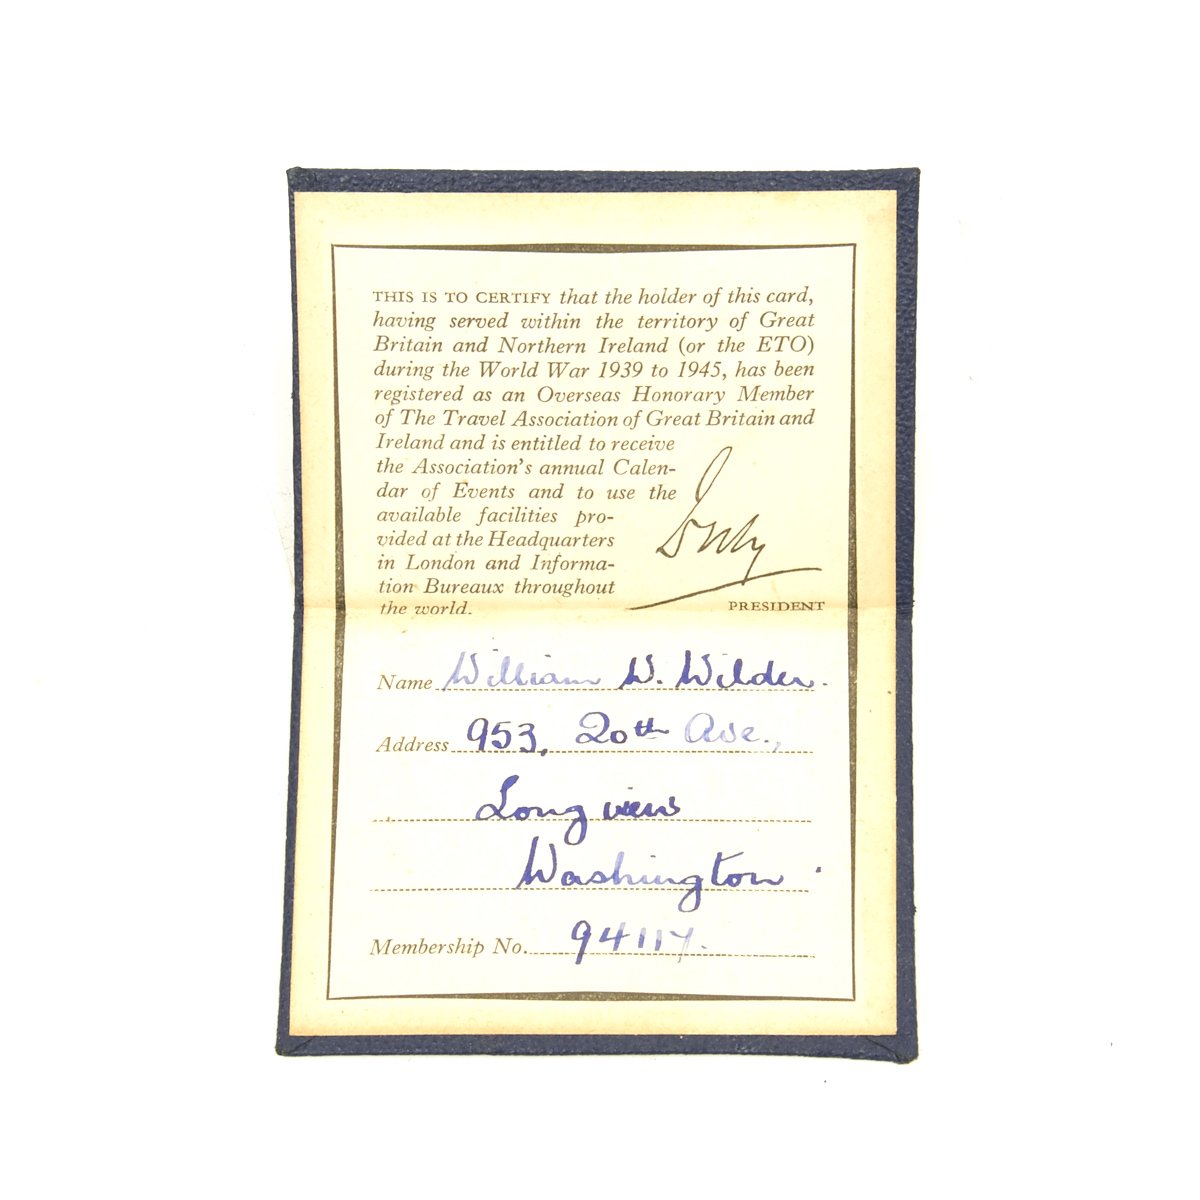 THIS IS TO CERTIFY that the holder of this card,
having served within the territory of Great
Britain and Northern Ireland (or the ETO)
during the World War 1939 to 1945, has been
registered as an Overseas Honorary Member
of The Travel Association of Great Britain and
Ireland and is entitled to receive
the Association's annual Calen-
dar of Events and to use the
available facilities pro-
vided at the Headquarters
in London and Informa-
tion Bureaux throughout
the world.
PRESIDENT
Name William W. Wilder.
Address 953, 20th Ave.,
Longview
Washington.
Membership No. 94117.